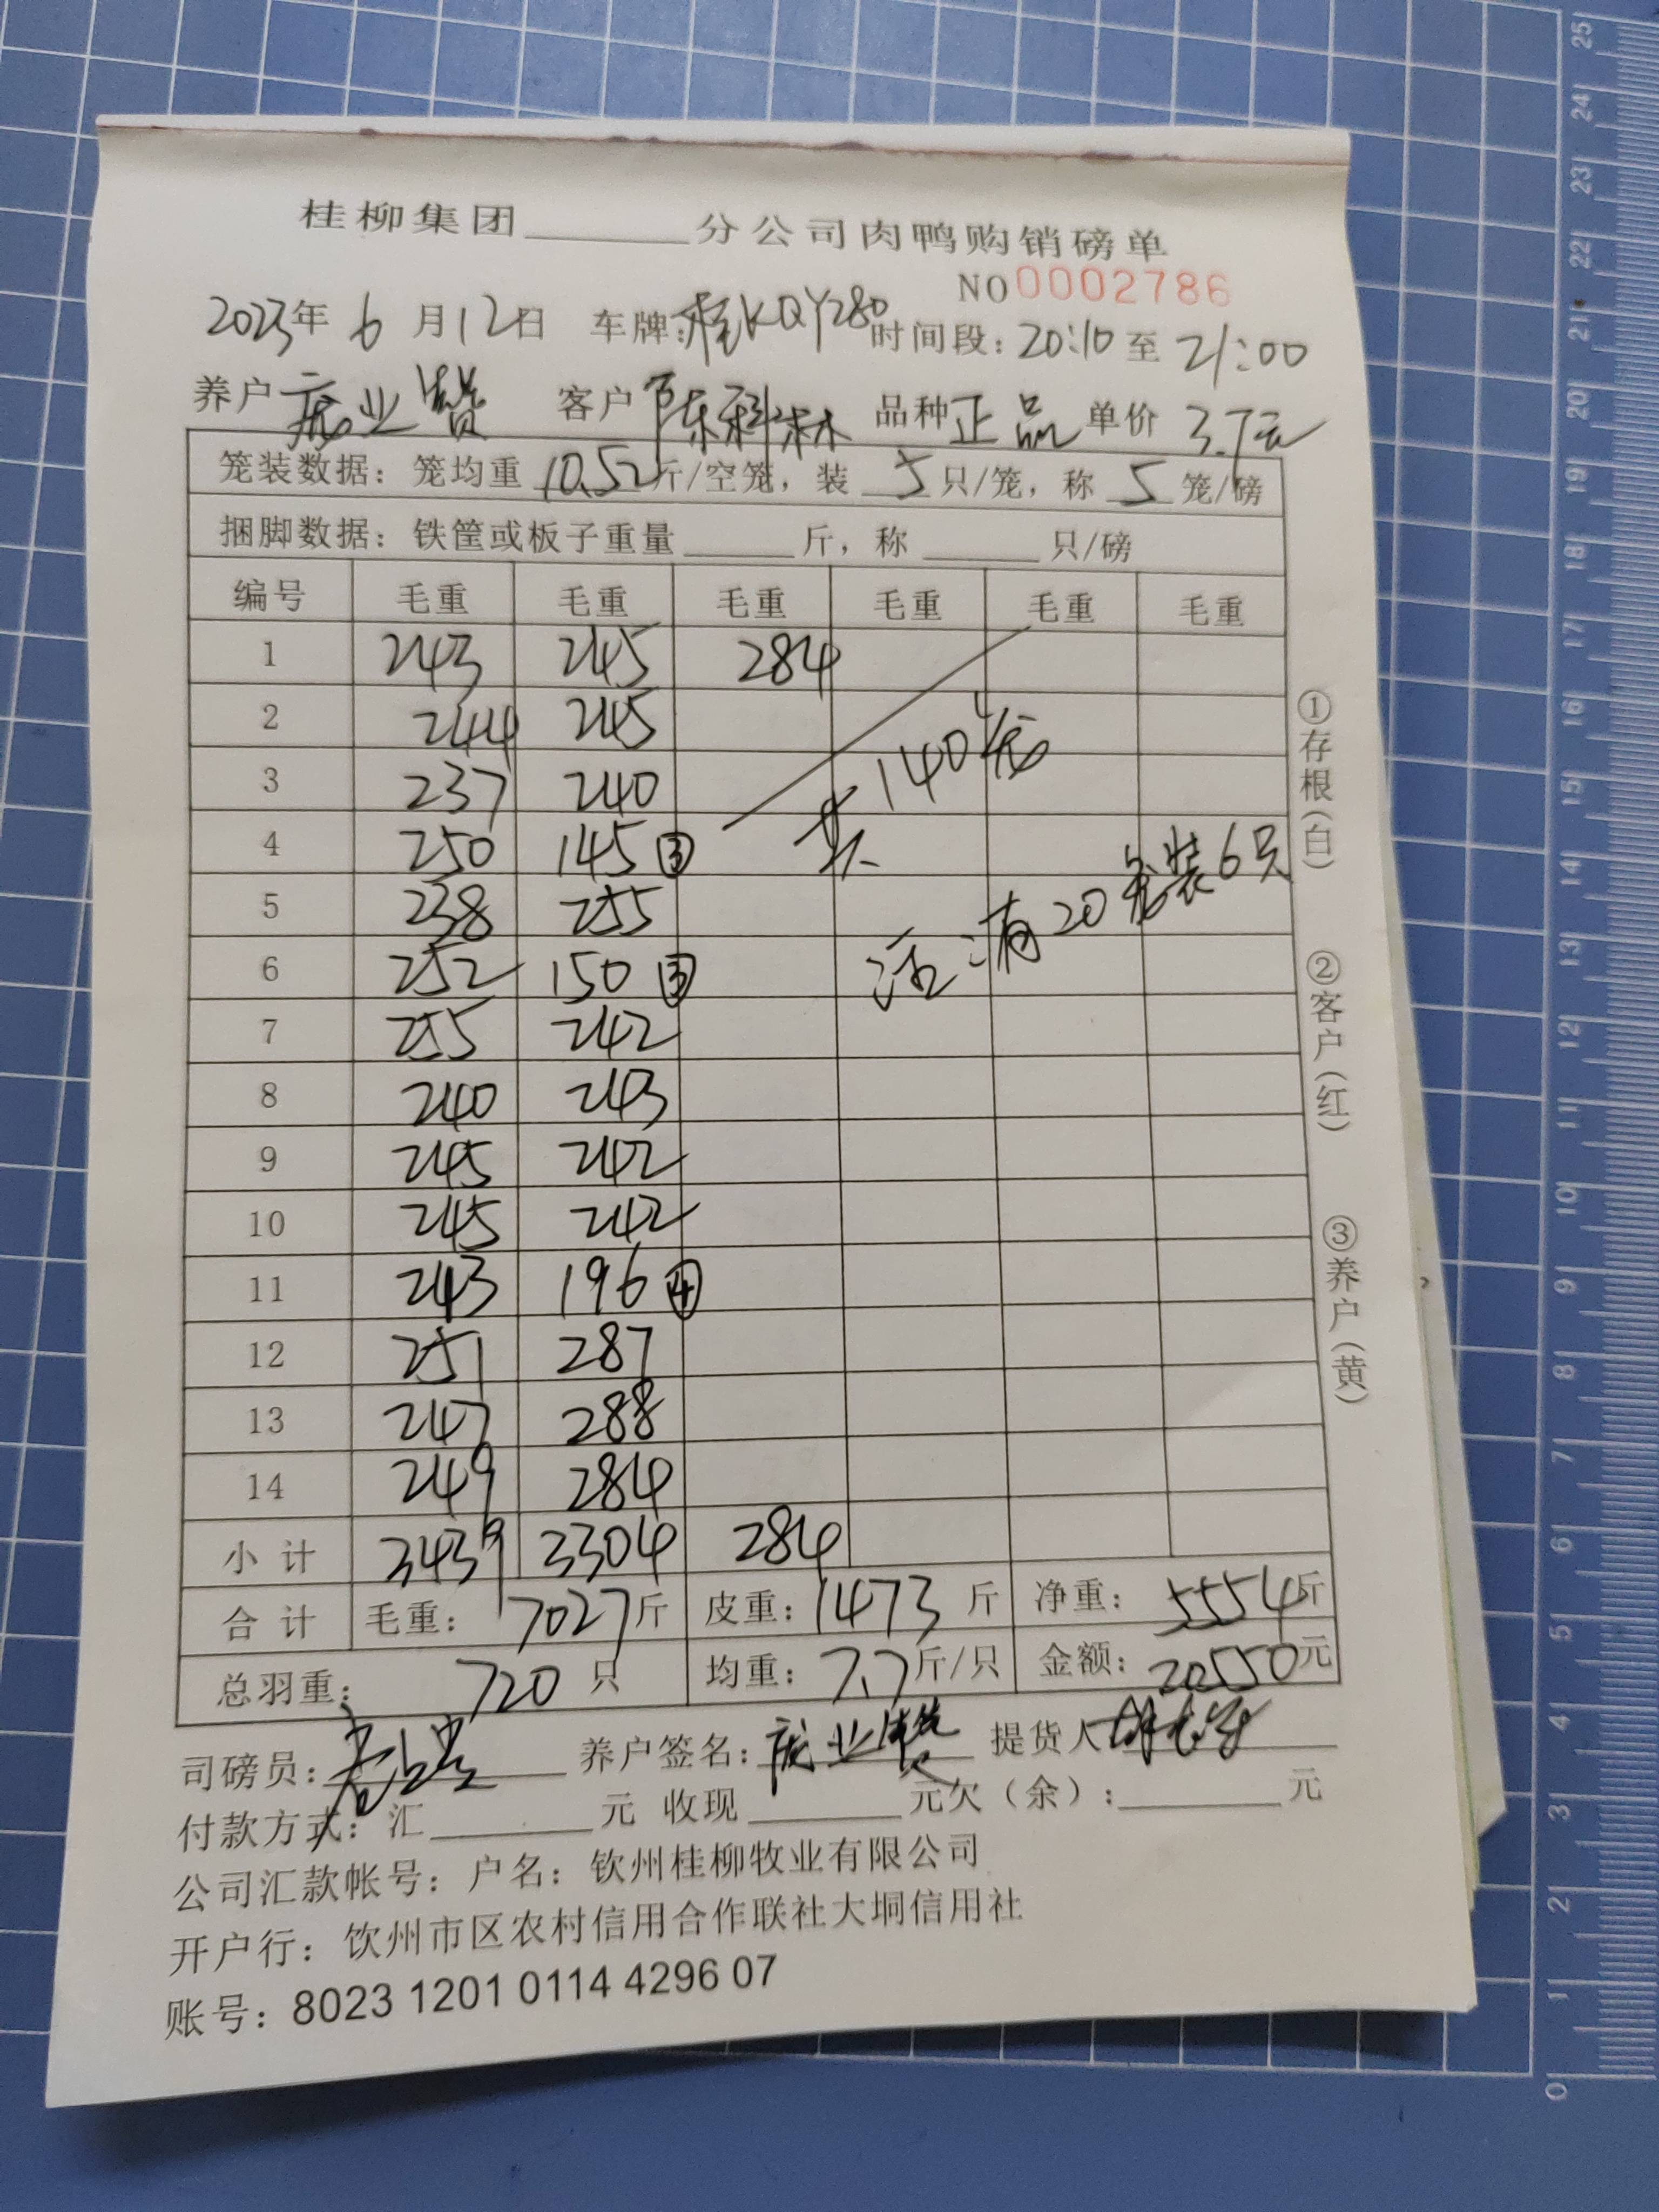 桂柳集团______分公司肉鸭购销磅单
NO 0002786
2023年 6 月12日 车牌:桂KQY280 时间段:20:10 至 21:00
养户 业赞 客户 陈科林 品种 正品 单价 3.7元
笼装数据:笼均重 10.52 斤/空笼,装 5 只/笼,称 5 笼/磅
捆脚数据:铁筐或板子重量______斤,称______只/磅
编号 毛重 毛重 毛重 毛重 毛重 毛重
1 243 245 284
2 244 245
3 237 240
共140笼
4 250 145③
5 238 255
注:有20笼装6只
6 252 150③
7 255 242
8 240 243
9 245 242
10 245 242
11 243 196④
12 251 287
13 247 288
14 249 284
小计 3439 3304 284
合计 毛重:7027斤 皮重:1473 斤 净重:5554斤
总羽重:720 只 均重:7.7斤/只 金额:20550元
司磅员: 养户签名: 业赞 提货人
付款方式:汇______元 收现______元欠(余):______元
公司汇款帐号:户名:钦州桂柳牧业有限公司
开户行:饮州市区农村信用合作联社大垌信用社
账号:8023 1201 0114 4296 07
①存根(白)
②客户(红)
③养户(黄)
0 1 2 3 4 5 6 7 8 9 10 11 12 13 14 15 16 17 18 19 20 21 22 23 24 25